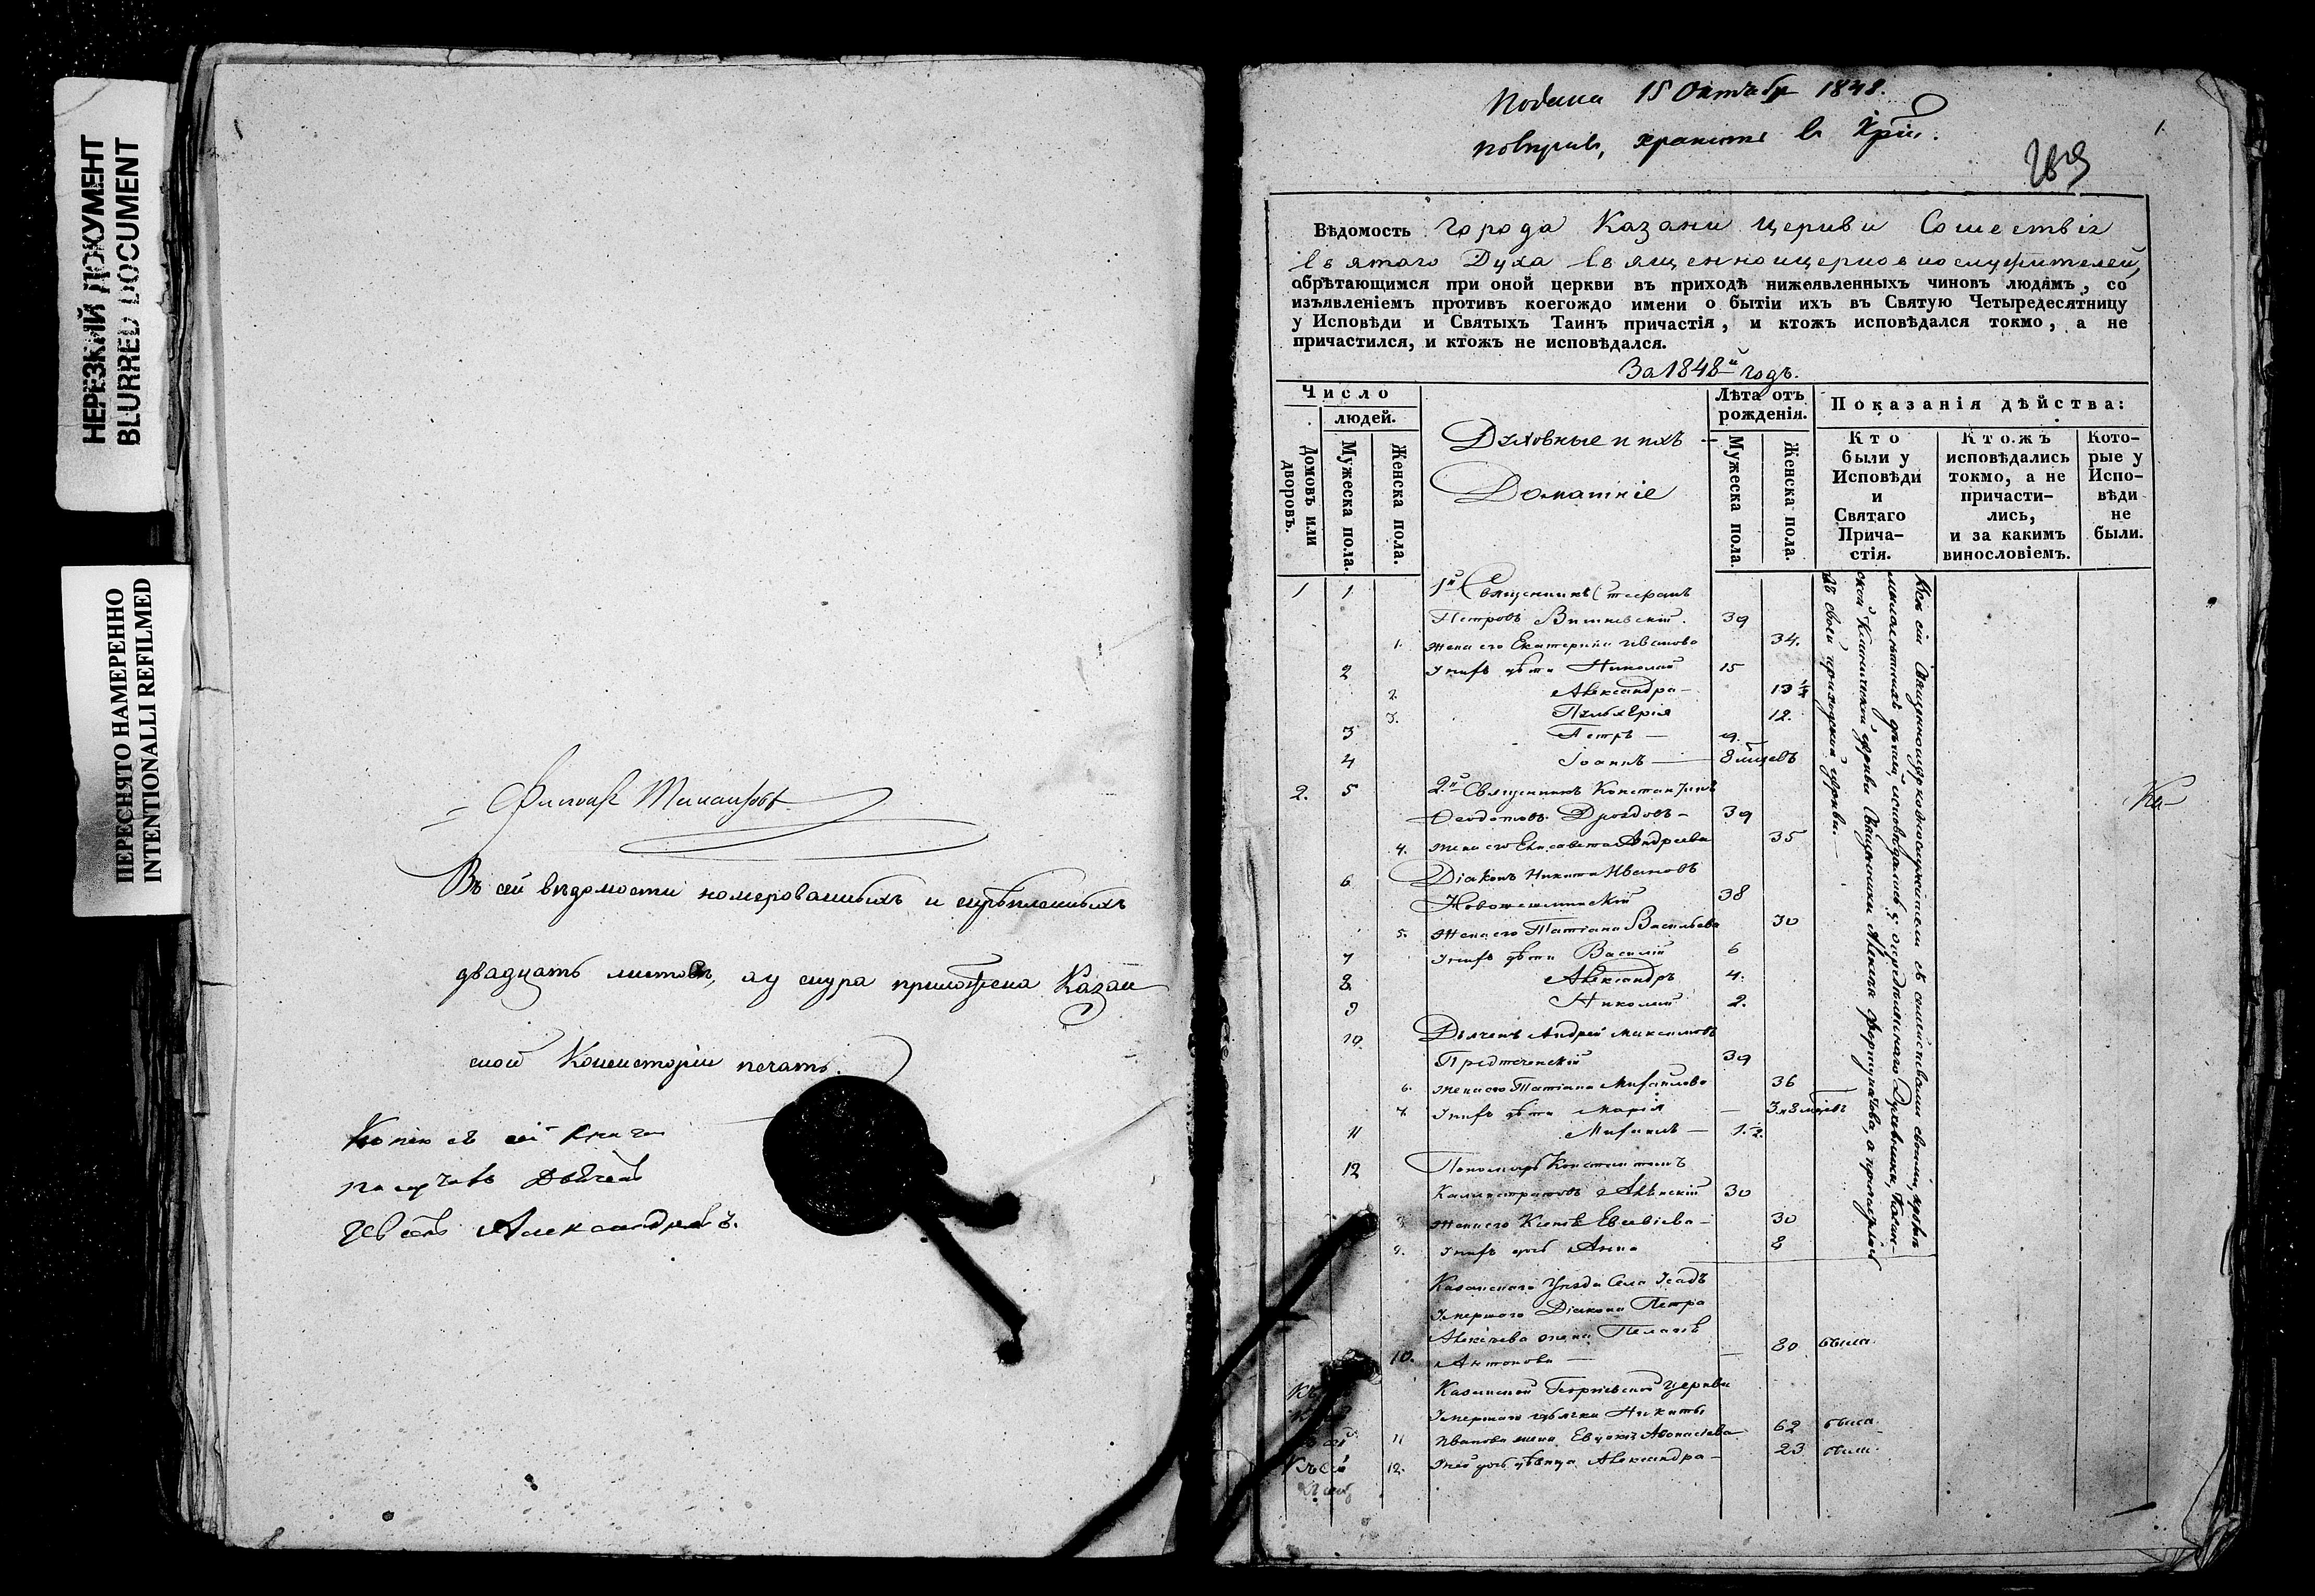 НЕРЕЗКИЙ ДОКУМЕНТ
BLURRED DOCUMENT
ПЕРЕСНЯТО НАМЕРЕННО
INTENTIONALLI REFILMED
Въ сей вѣдомости номерованныхъ и скрѣпленныхъ
двадцать листовъ, ку снура приложена Казан
ской Консисторіи печать.
Копію съ сей книги
получилъ Дьячекъ
Александровъ.
Подана 15 Октября 1848.
хранить въ
1.
Вѣдомость города Казани церкви Сошествія
Святаго Духа священноицерковнослужителей,
обрѣтающимся при оной церкви въ приходѣ нижеявленныхъ чиновъ людямъ, со
изъявленіемъ противъ коегождо имени о бытіи ихъ въ Святую Четыредесятницу
у Исповѣди и Святыхъ Таинъ причастія, и ктожъ исповѣдался токмо, а не
причастился, и ктожъ не исповѣдался.
За 1848й годъ.
Число
людей.
Домовъ или дворовъ.
Мужеска пола.
Женска пола.
Духовные и ихъ
Домашніе
Лѣта отъ рожденія.
Мужеска пола.
Женска пола.
Показанія дѣйства:
Кто были у Исповѣди и Святаго Прича-стія.
Ктожъ исповѣдались токмо, а не причасти-лись, и за какимъ винословіемъ.
Кото-рые у Испо-вѣди не были.
1 1 1й Священникъ Стефанъ
Петровъ Вишневскій. 39
1. Жена его Екатерина Иванова 34.
2 Ихъ дѣти Николай 15
2. Александра 13 1/2
3. Пульхерія 12.
3 Петръ — 9.
4 Іоаннъ — 8 мцевъ
2. 5 2й Священникъ Константинъ
Ѳеодотовъ Дроздовъ — 39
4. Жена его Елисавета Андреева 35
6 Діаконъ Никита Ивановъ
Новошешминскій 38
5. Жена его Татіана Васильева 30
7 Ихъ дѣти Василій 6
8 Александръ 4.
9 Николай 2.
10 Дьячекъ Андрей Максимовъ
Предтеченскій 39
6. Жена его Татіана Михайлова 36
7. Ихъ дѣти Марія — 3 и 8 мцевъ
11 Михаилъ — 1 1/2
12 Пономарь Константинъ
Калистратовъ 30
8. Жена его Евсевіева — 30
9. Ихъ дочь Анна 8
Казанскаго Уѣзда Села
Умершаго Діакона Петра
Алексѣева жена Пелагея
10. Антонова — 80 была.
Казанской Георгіевской церкви
Умершаго дьячка Никиты
11 Иванова жена Евдокія Аѳанасьева 62 была.
12. дочь дѣвица Александра — 23 была.
Всѣ сіи Священноицерковнослужители съ семействами своими, кромѣ
малолѣтнихъ дѣтей, исповѣдались у опредѣленнаго Духовника, Казан-
ской церкви Священника Алексѣя а причастились
въ своей приходской церкви.